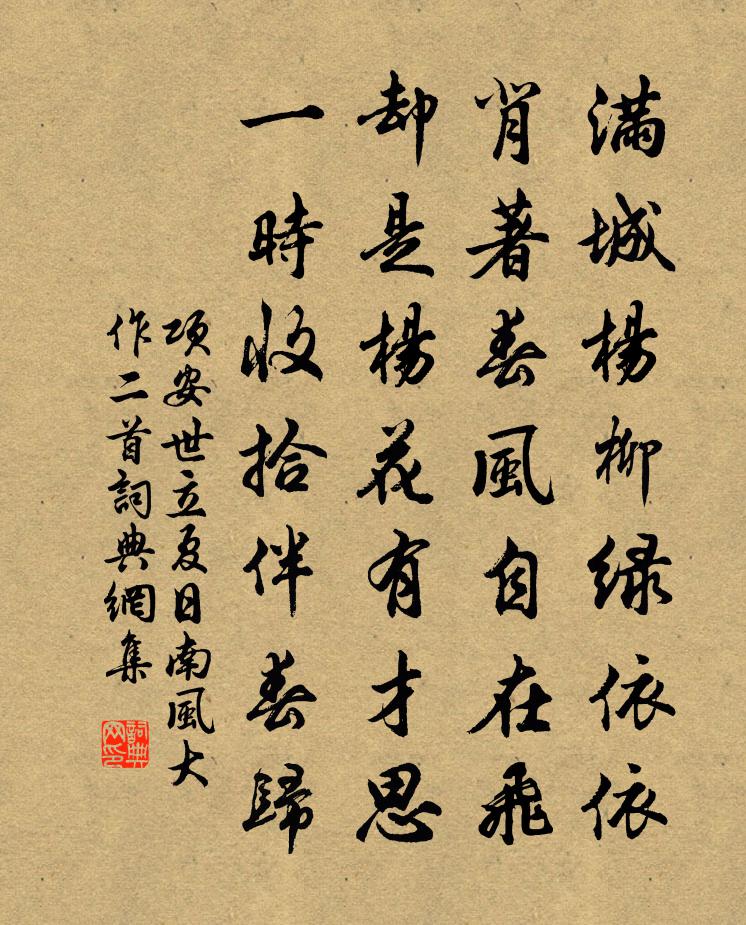 滿城楊柳綠依依
背著春風自在飛
却是楊花有才思
一時收拾伴春歸
項安世立夏日南風大
作二首詞典網集
詞典網印